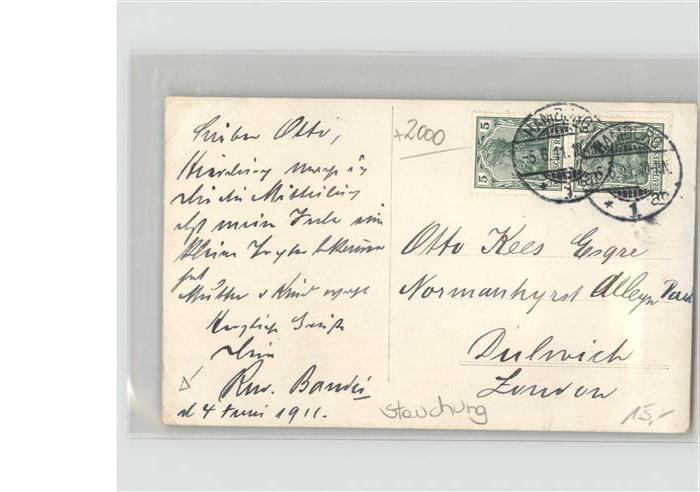 Lieber Otto,
Hierdurch mache ich
Dir die Mitteilung
daß meine Frau eine
kleine Tochter bekommen
hat
Mutter & Kind wohl
Herzliche Grüße
Dein
d 4 Juni 1911.
+2000
5
5
HAMBURG
5.6.11.
* 1
HAMBURG
5.6.11.
* 1
Otto Kees Esqre
Normanhyrst Alleyn Park
Dulwich
London
Stauchung
15,-